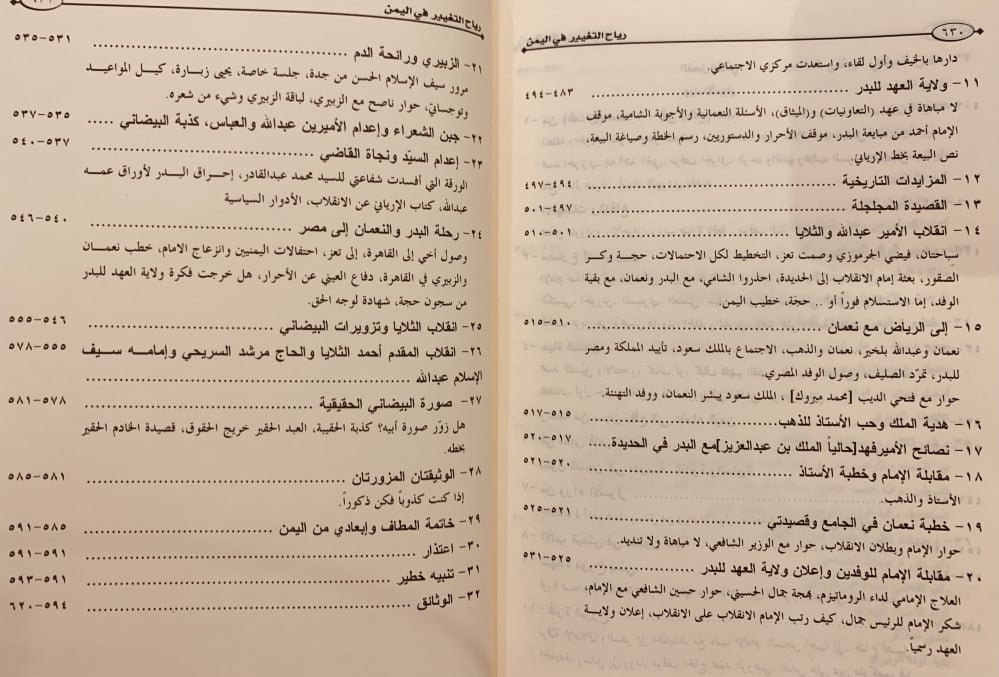 ٦٣٠
رياح التغيير في اليمن
دارها بالخيف وأول لقاء، واستعدت مركزي الاجتماعي.
١١- ولاية العهد للبدر ................ ٤٨٣-٤٩٤
لا مباهاة في عهد (التعاونيات) و(الميثاق)، الأسئلة النعمانية والأجوبة الشامية، موقف
الإمام أحمد من مبايعة البدر، موقف الأحرار والدستوريين، رسم الخطة وصياغة البيعة،
نص البيعة بخط الإرياني.
١٢- المزايدات التاريخية ................ ٤٩٤-٤٩٧
١٣- القصيدة المجلجلة ................ ٤٩٧-٥٠١
١٤- انقلاب الأمير عبدالله والثلايا ................ ٥٠١-٥١٠
سباحتان، فيضي الجرموزي وصمت تعز، التخطيط لكل الاحتمالات، حجة وكر
الصقور، بعثة إمام الانقلاب إلى الحديدة، احذروا الشامي، مع البدر ونعمان، مع بقية
الوفد، إما الاستسلام فوراً أو .. حجة، خطيب اليمن.
١٥- إلى الرياض مع نعمان ................ ٥١٠-٥١٥
نعمان وعبدالله بلخير، نعمان والذهب، الاجتماع بالملك سعود، تأييد المملكة ومصر
للبدر، تمرّد الصليف، وصول الوفد المصري.
حوار مع فتحي الديب [محمد مبروك] ، الملك سعود يبشر النعمان، ووفد التهنئة.
١٦- هدية الملك وحب الأستاذ للذهب ................ ٥١٥-٥١٧
١٧- نصائح الأميرفهد[حالياً الملك بن عبدالعزيز]مع البدر في الحديدة..... ٥١٧-٥٢٠
١٨- مقابلة الإمام وخطبة الأستاذ ................ ٥٢٠-٥٢١
الأستاذ والذهب.
١٩- خطبة نعمان في الجامع وقصيدتي ................ ٥٢١-٥٢٥
حوار الإمام وبطلان الانقلاب، حوار مع الوزير الشافعي، لا مباهاة ولا تنديد.
٢٠- مقابلة الإمام للوفدين وإعلان ولاية العهد للبدر ................ ٥٢٥-٥٣١
العلاج الإمامي لداء الروماتيزم، بهجة جمال الحسيني، حوار حسين الشافعي مع الإمام،
شكر الإمام للرئيس جمال، كيف رتب الإمام الانقلاب على الانقلاب، إعلان ولاية
العهد رسمياً.
رياح التغيير في اليمن
٢١- الزبيري ورائحة الدم ................ ٥٣١-٥٣٥
مرور سيف الإسلام الحسن من جدة، جلسة خاصة، يحيى زبارة، كيل المواعيد
وتوجساتي، حوار ناصح مع الزبيري، لباقة الزبيري وشيء من شعره.
٢٢- جبن الشعراء وإعدام الأميرين عبدالله والعباس، كذبة البيضاني ..... ٥٣٥-٥٣٧
٢٣- إعدام السيّد ونجاة القاضي ................ ٥٣٧-٥٤٠
الورقة التي أفسدت شفاعتي للسيد محمد عبدالقادر، إحراق البدر لأوراق عمه
عبدالله، كتاب الإرياني عن الانقلاب، الأدوار السياسية
٢٤- رحلة البدر والنعمان إلى مصر ................ ٥٤٠-٥٤٦
وصول أخي إلى القاهرة، إلى تعز، احتفالات اليمنيين وانزعاج الامام، خطب نعمان
والزبيري في القاهرة، دفاع العيني عن الأحرار، هل خرجت فكرة ولاية العهد للبدر
من سجون حجة، شهادة لوجه الحق.
٢٥- انقلاب الثلايا وتزويرات البيضاني ................ ٥٤٦-٥٥٥
٢٦- انقلاب المقدم أحمد الثلايا والحاج مرشد السريحي وإمامه سيف ٥٥٥-٥٧٨
الإسلام عبدالله ................
٢٧- صورة البيضاني الحقيقية ................ ٥٧٨-٥٨١
هل زوّر صورة أبيه؟ كذبة الحقيبة، العبد الحقير خريج الحقوق، قصيدة الخادم الحقير
بخطه.
٢٨- الوثيقتان المزورتان ................ ٥٨١-٥٨٥
إذا كنت كذوباً فكن ذكوراً.
٢٩- خاتمة المطاف وإبعادي من اليمن ................ ٥٨٥-٥٩١
٣٠- اعتذار ................ ٥٩١-٥٩١
٣١- تنبيه خطير ................ ٥٩١-٥٩٣
٣٢- الوثائق ................ ٥٩٤-٦٢٠